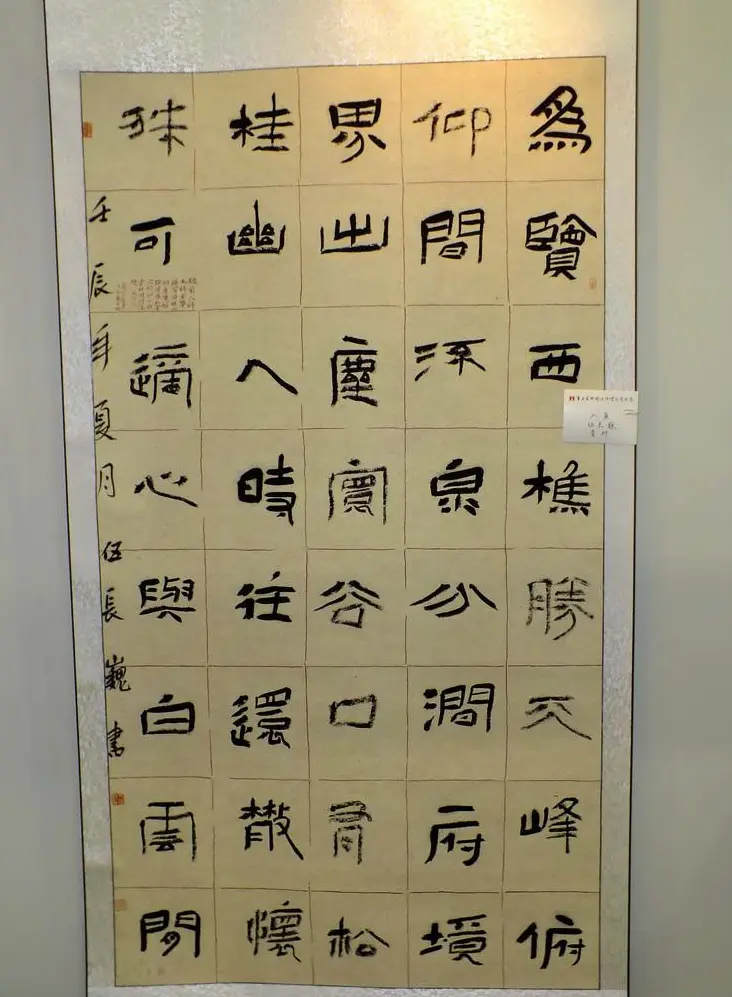 為覽西樵勝天峰俯
仰間流泉分澗府境
界出塵寰谷口松
桂幽人時往還散懷
殊可適心與白雲閒
壬辰年夏月伍長巍書